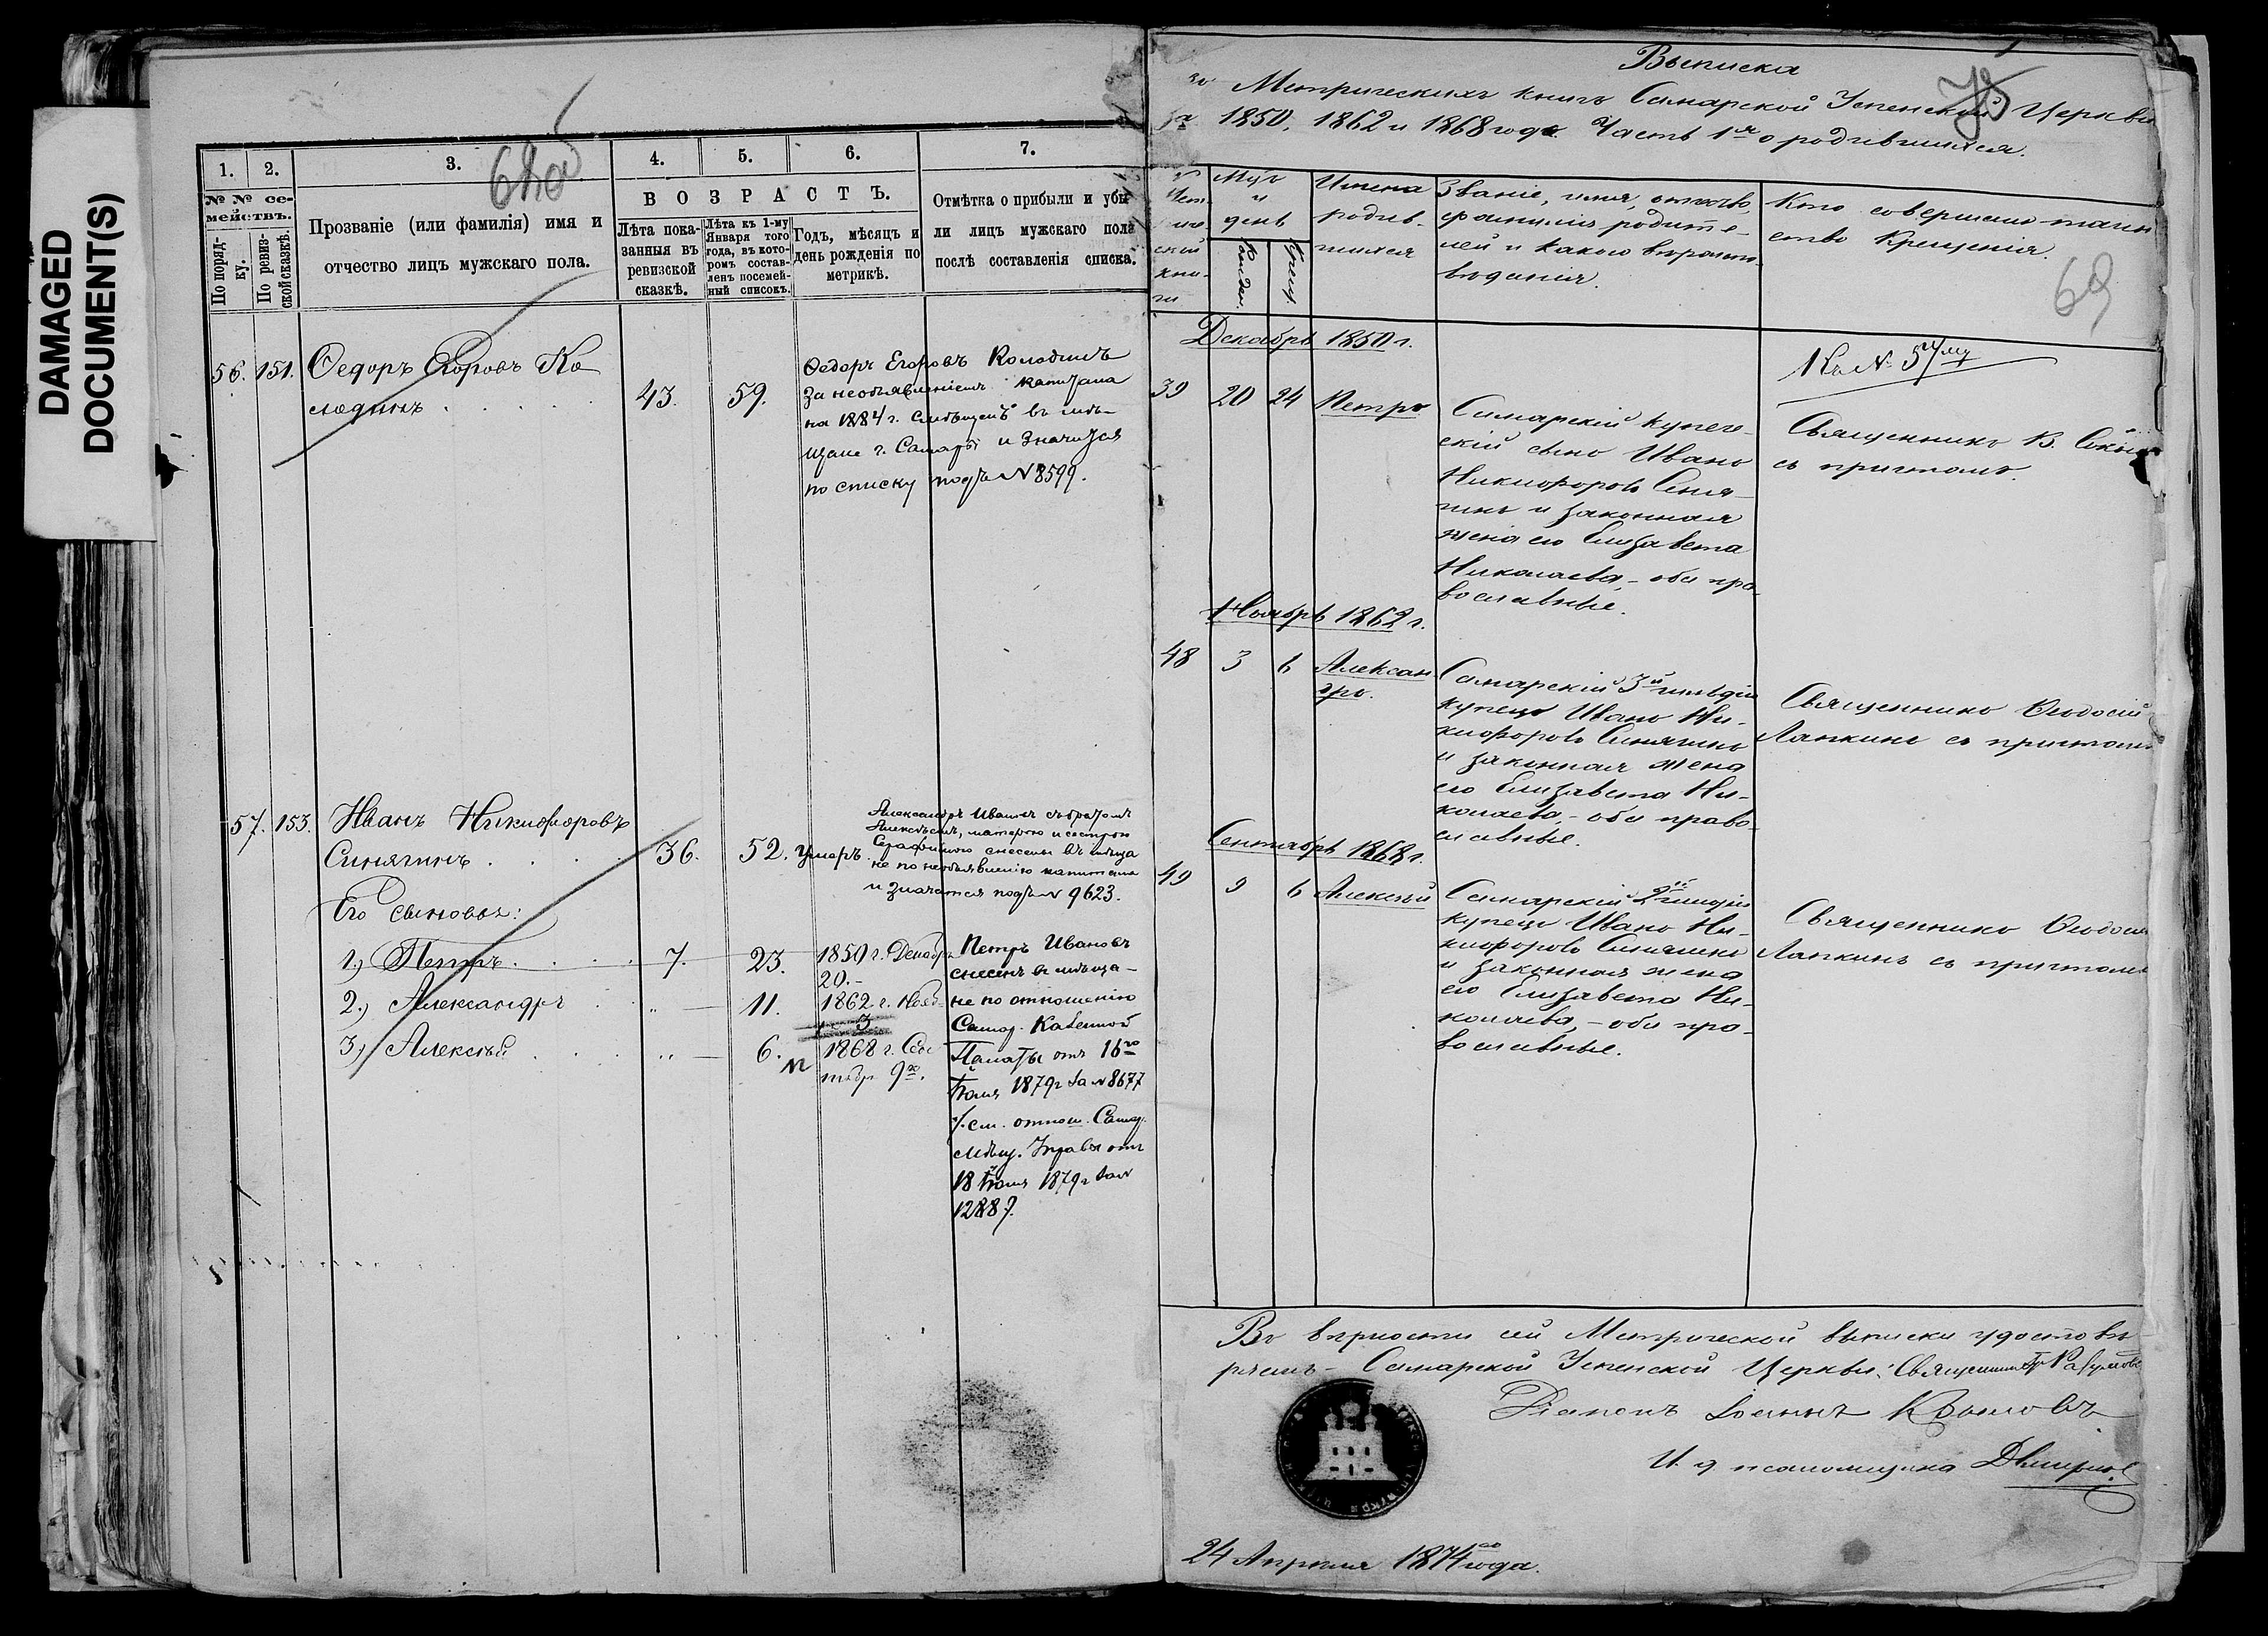 DAMAGED
DOCUMENT(S)
1.
2.
3.
4.
5.
6.
7.
№ № се-
мействъ.
По поряд-
ку.
По ревиз-
ской сказкѣ.
Прозваніе (или фамилія) имя и
отчество лицъ мужскаго пола.
ВОЗРАСТЪ.
Лѣта пока-
занныя въ
ревизской
сказкѣ.
Лѣта къ 1-му
Января того
года, въ кото-
ромъ состав-
ленъ посемей-
ный списокъ.
Годъ, мѣсяцъ и
день рожденія по
метрикѣ.
Отмѣтка о прибыли и убы-
ли лицъ мужскаго пола
послѣ составленія списка.
56. 151. Ѳедоръ Егоровъ Ко-
лодинъ 43. 59.
Ѳедоръ Егоровъ Колодинъ
За необъявленіемъ капитала
на 1884 г. въ мѣ-
щане г. Самары и значится
по списку подъ № 8599.
57. 153. Иванъ Никифоровъ
Синягинъ 36. 52. умеръ
Александръ Ивановъ съ братомъ
Алексѣемъ, матерью и сестрою
Серафимою снесены въ мѣща
не по необъявленію капитала
и значатся подъ № 9623.
Его сыновья:
1.) Петръ 7. 23. 1850 г. Декабр
20.-
2.) Александръ " 11. 1862 г. Нояб
3
3.) Алексѣй " 6. 1868 г. Сен
тябр 9го.
Петръ Ивановъ
снесенъ въ мѣща-
не по отношенію
Самар. Казенной
Палаты отъ 16го
Іюля 1879 г за № 8677
см. отнош. Самар.
Мѣщ. Управы отъ
18 Іюля 1879 г за №
12887.
Выписка
изъ Метрическихъ книгъ Самарской Успенской Церкви
за 1850, 1862 и 1868 года. Часть 1я о родившихся.
69
Мет-
риче-
ской
кни-
ги
Мцъ
и
день
Рожден.
Крещ.
Имена
родив-
шихся
Званіе, имя, отчество,
фамилія родите-
лей и какого вѣроисп-
вѣданія.
Кто совершалъ таин
ство Крещенія.
Декабрь 1850 г.
Къ № 57му
39 20 24 Петръ
Самарскій купече-
скій сынъ Иванъ
Никифоровъ Синя-
гинъ и законная
жена его Елизавета
Николаева, - оба пра-
вославные.
Священникъ В.
съ причтомъ.
Ноябрь 1862 г.
48 3 6 Алексан-
дръ.
Самарскій 3й гильдіи
купецъ Иванъ Ни-
кифоровъ Синягинъ
и законная жена
его Елизавета Ни-
колаева, - оба право-
славные.
Священникъ Ѳеодосій
Лапкинъ съ причтомъ
Сентябрь 1868 г.
49 9 6 Алексѣй
Самарскій 2й гильдіи
купецъ Иванъ Ни-
кифоровъ Синягинъ
и законная жена
его Елизавета Ни-
колаева, - оба пра-
вославные.
Священникъ Ѳеодосій
Лапкинъ съ причтомъ
Въ вѣрности сей Метрической выписки удостовѣ-
ряемъ - Самарской Успенской Церкви: Священникъ
Діаконъ Іоаннъ Крыловъ
И. д. псаломщика
24 Апрѣля 1874го года.